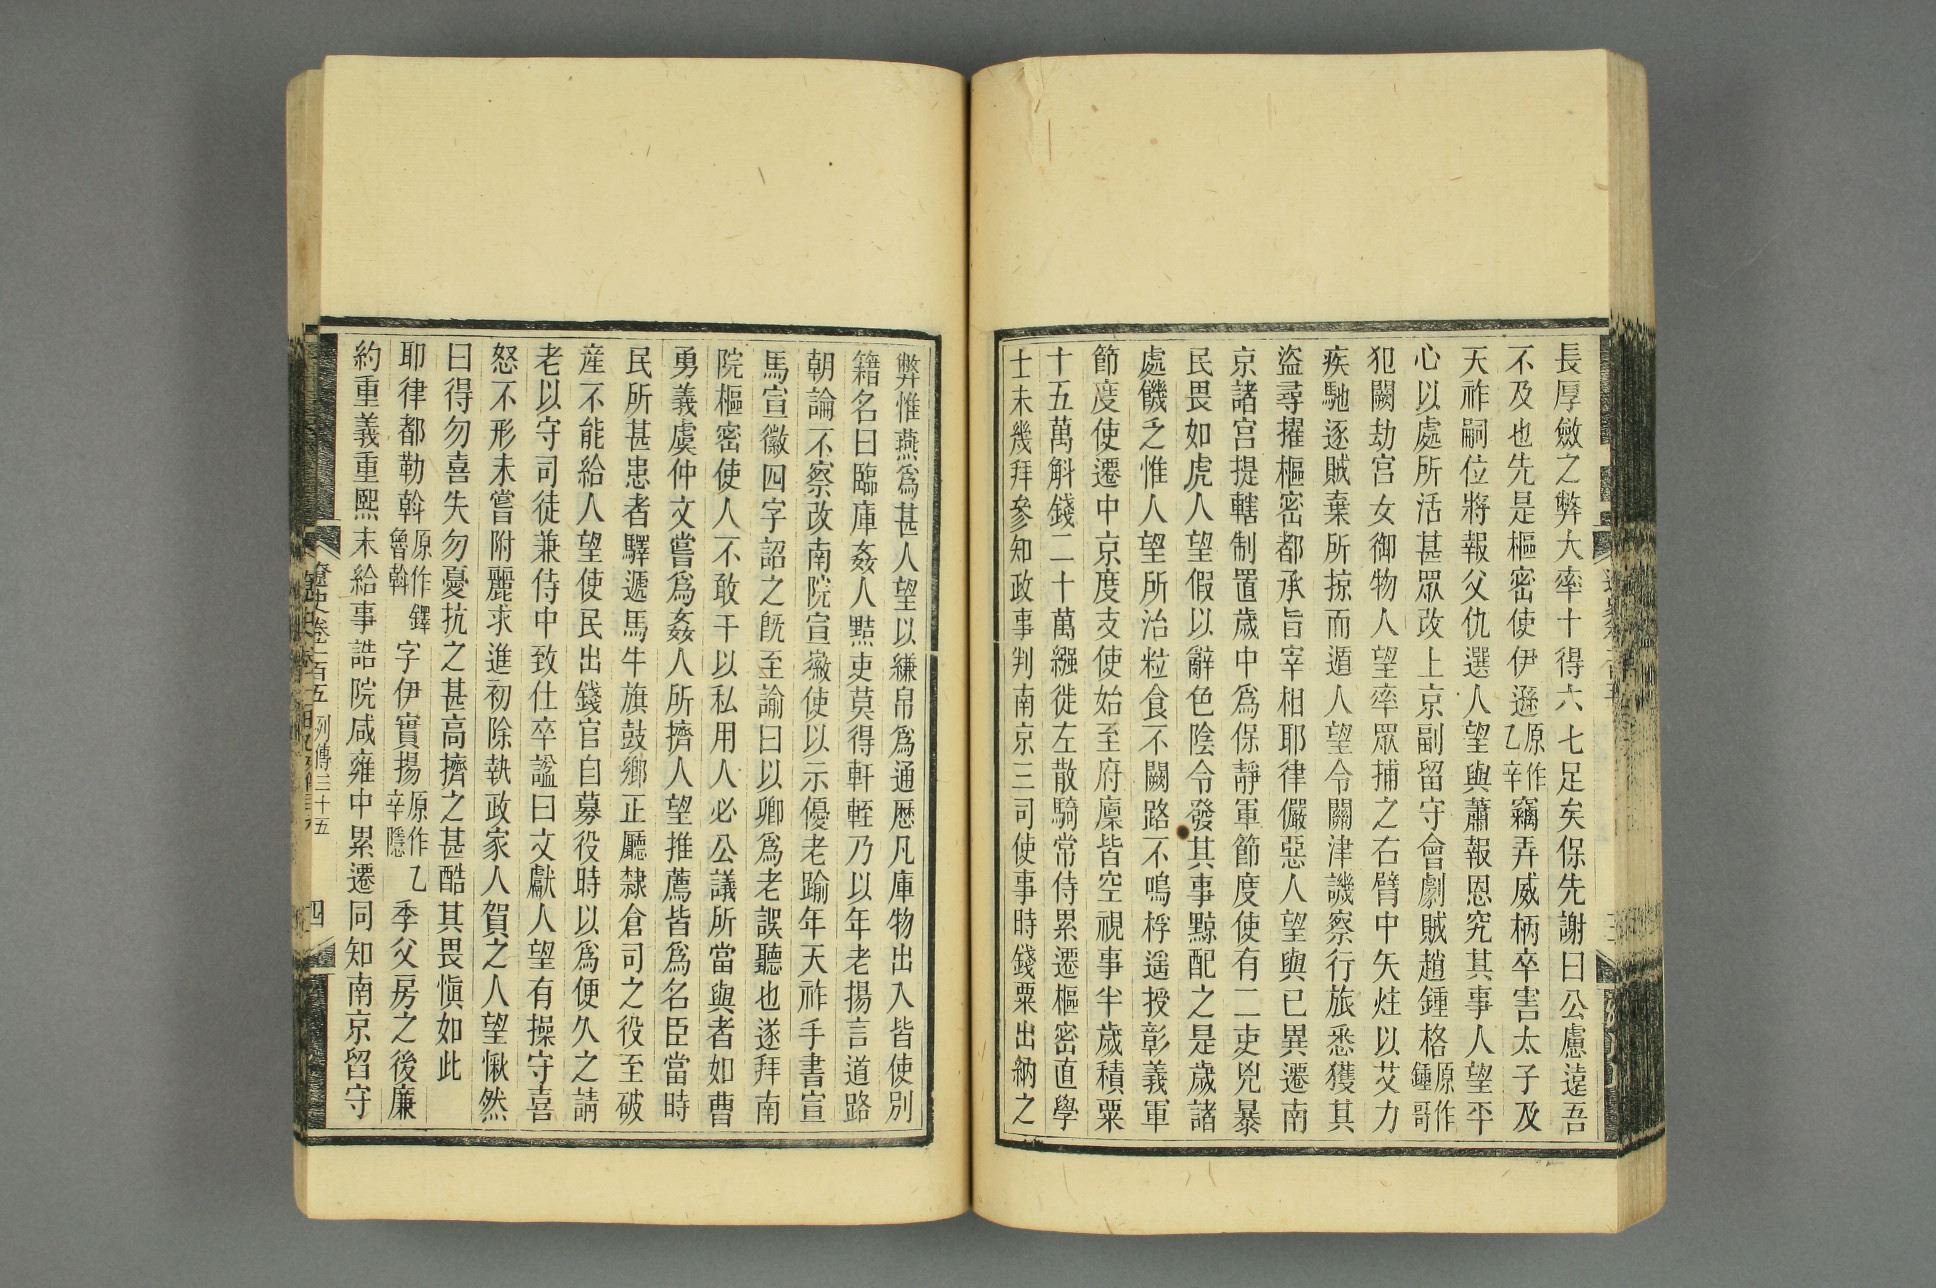 長厚斂之弊大率十得六七足矣保先謝曰公慮遠吾
不及也先是樞密使伊遜原作乙辛竊弄威柄卒害太子及
天祚嗣位將報父仇選人望與蕭報恩究其事人望平
心以處所活甚眾改上京副留守會劇賊趙鍾格原作鍾哥
犯闕劫宮女御物人望率眾捕之右臂中矢炷以艾力
疾馳逐賊棄所掠而遁人望令關津譏察行旅悉獲其
盜尋擢樞密都承旨宰相耶律儼惡人望與已異遷南
京諸宮提轄制置歲中爲保靜軍節度使有二吏兇暴
民畏如虎人望假以辭色陰令發其事黥配之是歲諸
處饑乏惟人望所治粒食不闕路不鳴桴遥授彰義軍
節度使遷中京度支使始至府廪皆空視事半歲積粟
十五萬斛錢二十萬繦徙左散騎常侍累遷樞密直學
士未幾拜參知政事判南京三司使事時錢粟出納之
弊惟燕爲甚人望以縑帛爲通歷凡庫物出入皆使別
籍名曰臨庫姦人黠吏莫得軒輊乃以年老揚言道路
朝論不察改南院宣徽使以示優老踰年天祚手書宣
馬宣徽四字詔之既至諭曰以卿爲老誤聽也遂拜南
院樞密使人不敢干以私用人必公議所當與者如曹
勇義虞仲文嘗爲姦人所擠人望推薦皆爲名臣當時
民所甚患者驛遞馬牛旗鼓鄉正廳隸倉司之役至破
産不能給人望使民出錢官自募役時以爲便久之請
老以守司徒兼侍中致仕卒諡曰文獻人望有操守喜
怒不形未嘗附麗求進初除執政家人賀之人望愀然
曰得勿喜失勿憂抗之甚高擠之甚酷其畏慎如此
耶律都勒斡原作鐸魯斡字伊實揚原作乙辛隱季父房之後廉
約重義重熙末給事誥院咸雍中累遷同知南京留守
遼史卷一百五 列傳三十五 四